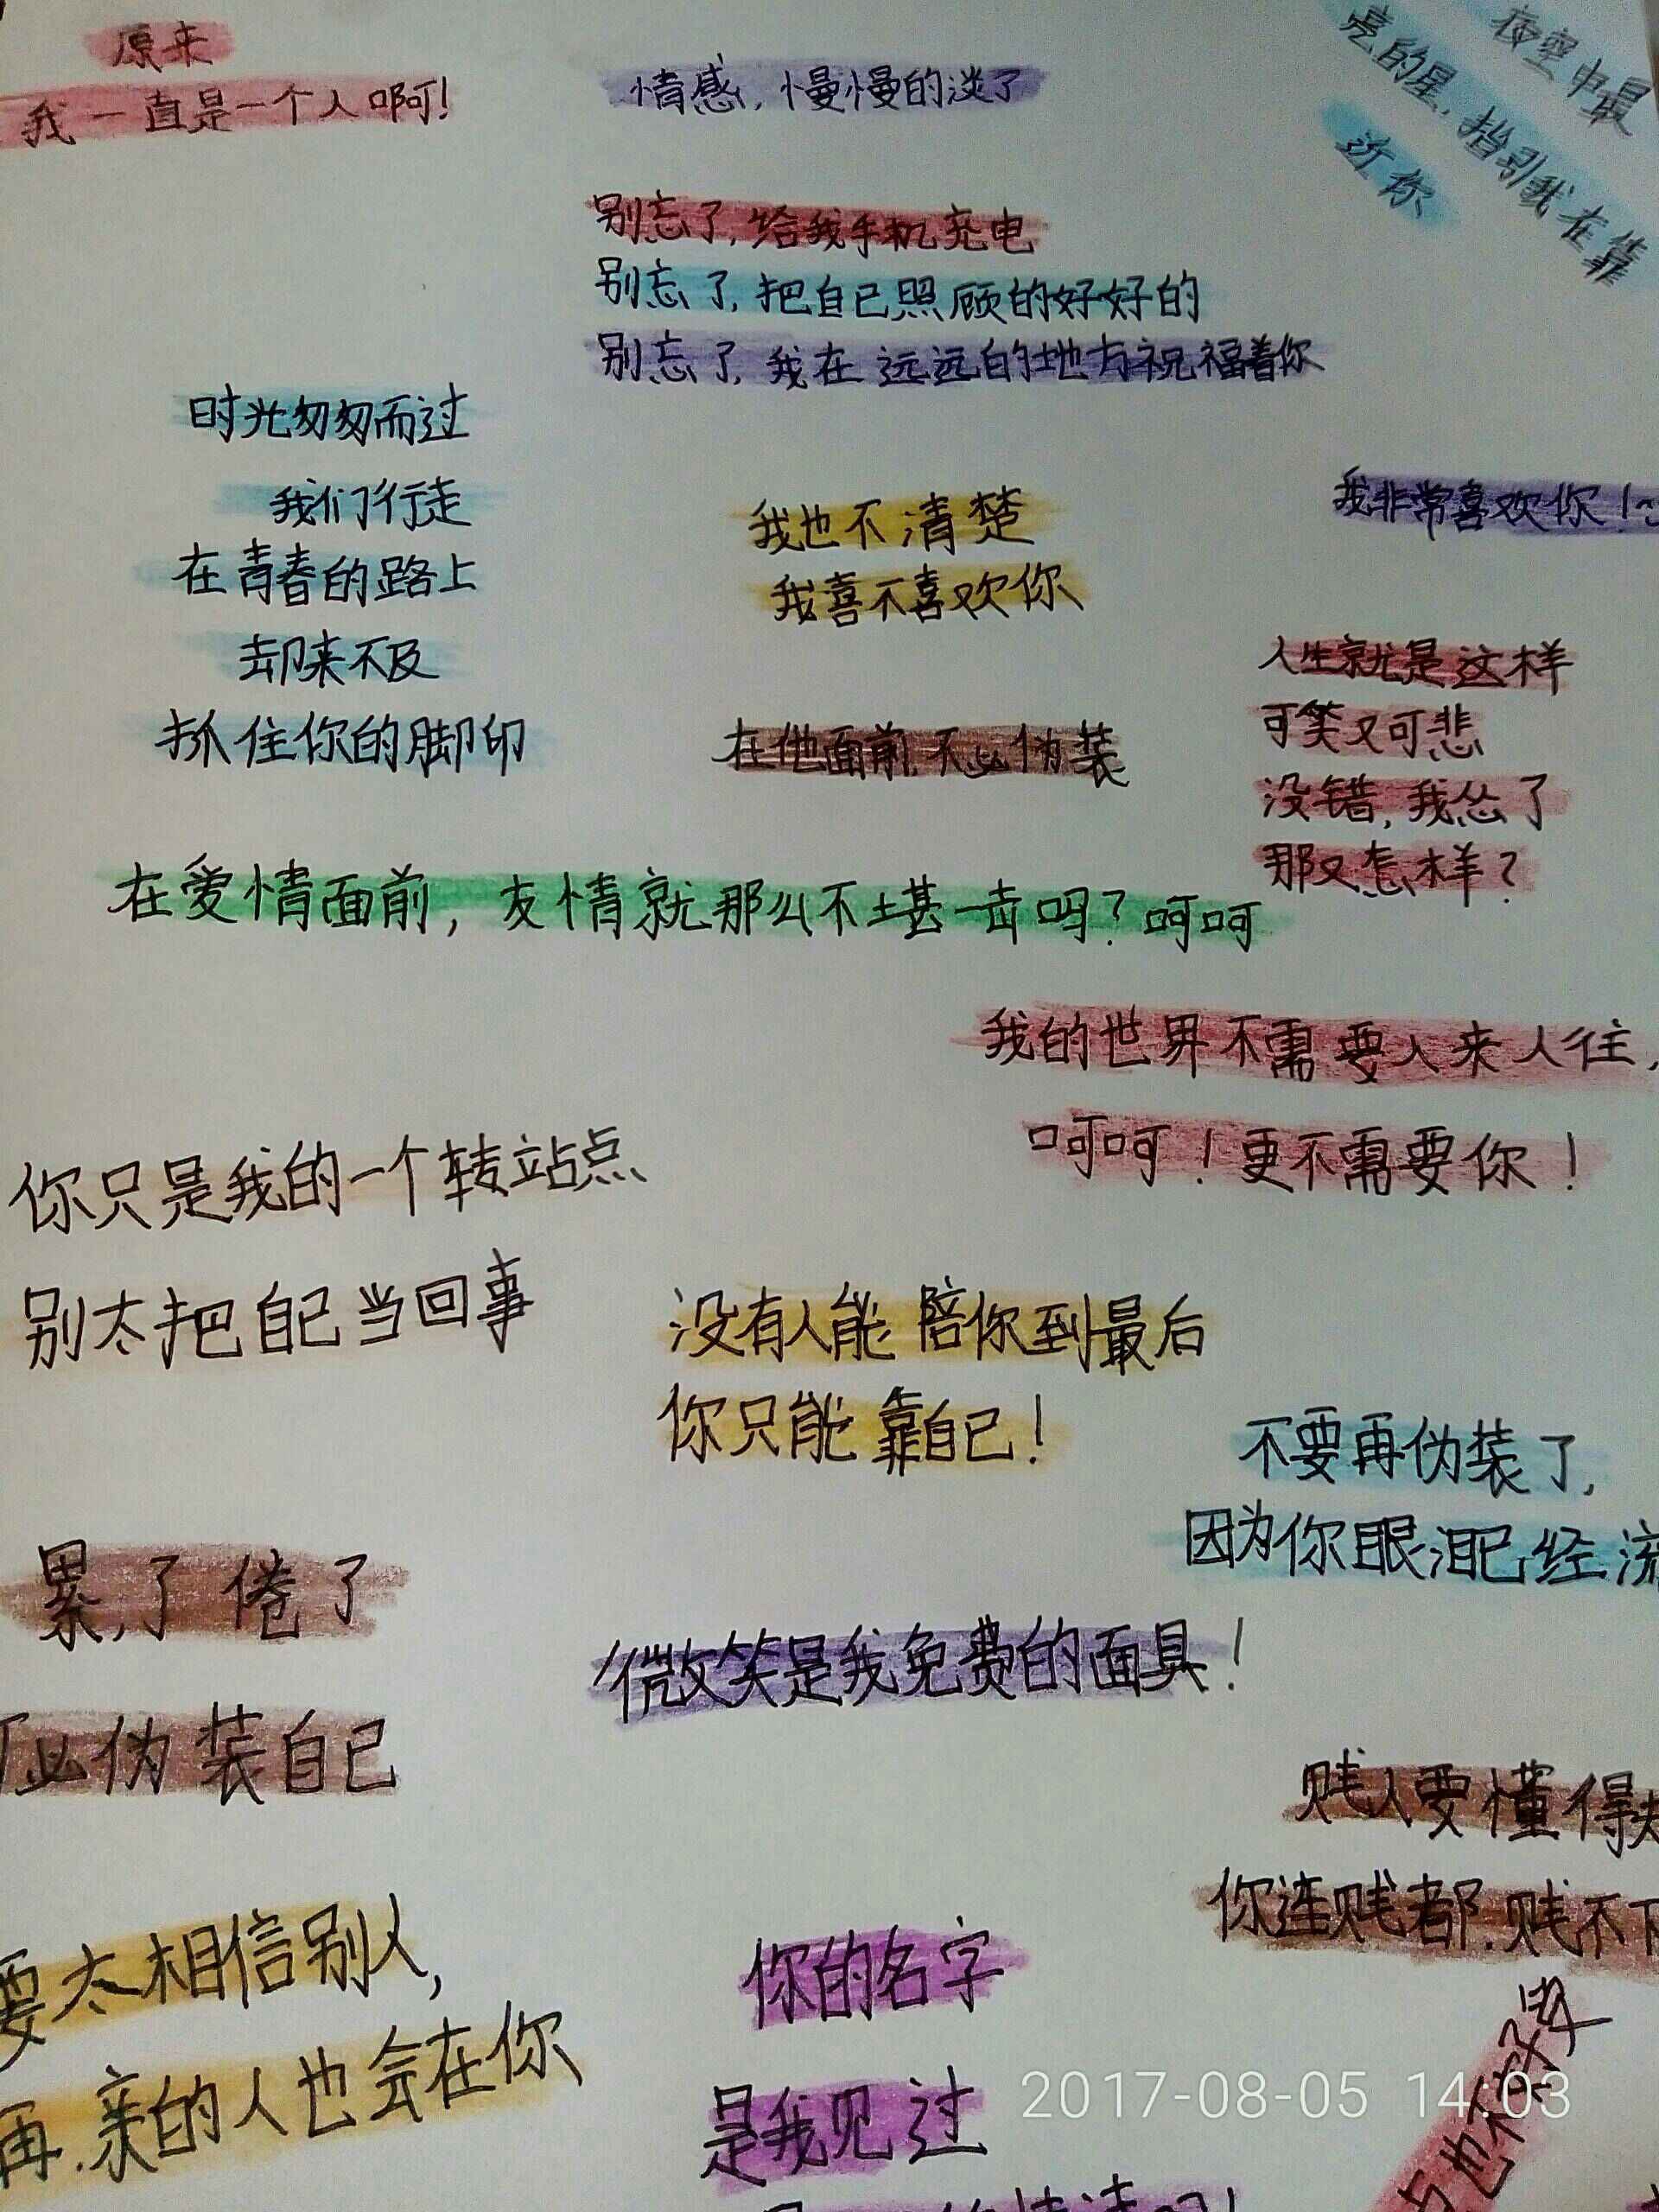 原来
我一直是一个人啊!
情感,慢慢的淡了
夜空中最
亮的星,指引我在靠
近你
别忘了,给我手机充电
别忘了,把自己照顾的好好的
别忘了,我在远远的地方祝福着你
时光匆匆而过
我们行走
在青春的路上
却来不及
抓住你的脚印
我也不清楚
我喜不喜欢你
我非常喜欢你!~
在他面前,不必伪装
人生就是这样
可笑又可悲
没错,我怂了
那又怎样?
在爱情面前,友情就那么不堪一击吗?呵呵
我的世界不需要人来人往,
呵呵!更不需要你!
你只是我的一个转站点
别太把自己当回事
没有人能陪你到最后
你只能靠自己!
不要再伪装了,
因为你眼泪已经流
累了倦了
必伪装自己
微笑是我免费的面具!
贱人要懂得
你连贱都.贱不
要太相信别人,
再.亲的人也会在你
你的名字
是我见过
2017-08-05 14:03
也不